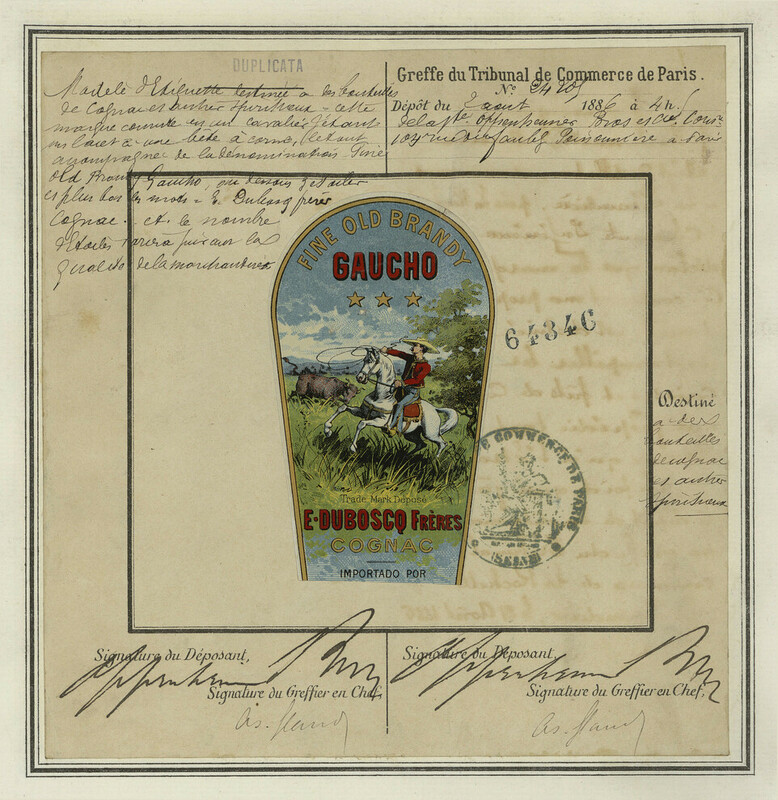 DUPLICATA
Modèle d'Etiquette destinée à des bouteilles
de Cognac et autres Spiritueux - cette
marque consiste en un cavalier jetant
un lacet à une bête à corne, le tout
accompagné de la dénomination Fine
Old Brandy Gaucho, au dessous 3 étoiles
et plus bas les mots - E. Duboscq frères
Cognac - et le nombre
d'étoiles variera suivant la
qualité de la marchandise
Greffe du Tribunal de Commerce de Paris.
No.
Dépôt du 7 août 1886 à 2h.
de la Ste. Oppenheimer Bros et Cie
rue du faubg Poissonnière à Paris
FINE OLD BRANDY
GAUCHO
64346
Trade Mark Déposé
E. DUBOSCQ FRÈRES
COGNAC
IMPORTADO POR
Destiné
à des
bouteilles
de cognac
et autres
spiritueux
DE COMMERCE DE PARIS
(SEINE)
Signature du Déposant,
Signature du Greffier en Chef,
Signature du Déposant,
Signature du Greffier en Chef,